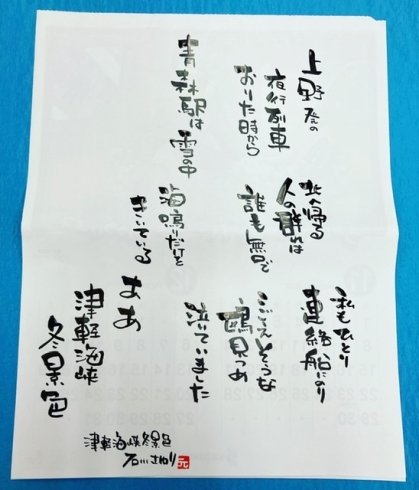 上野発の
夜行列車
おりた時から
青森駅は雪の中
北へ帰る
人の群れは
誰も無口で
海鳴りだけを
きいている
私もひとり
連絡船にのり
こごえそうな
鴎見つめ
泣いていました
ああ
津軽海峡
冬景色
津軽海峡冬景色
石川さゆり
元